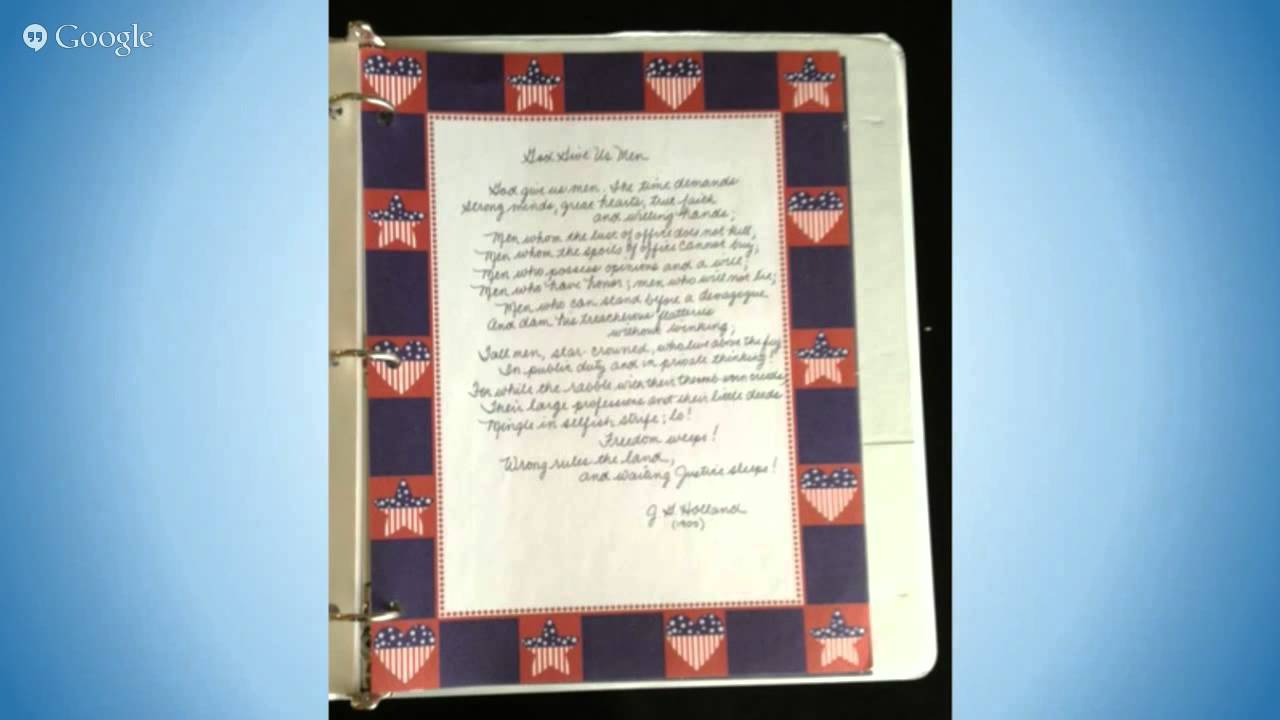 Google
God Give Us Men
God give us men. The time demands
Strong minds, great hearts, true faith
and willing hands;
Men whom the lust of office does not kill,
Men whom the spoils of office cannot buy,
Men who possess opinions and a will;
Men who have honor; men who will not lie;
Men who can stand before a demagogue
And dam his treacherous flatteries
without winking;
Tall men, star-crowned, who live above the fog
In public duty and in private thinking!
For while the rabble with their thumb worn creeds
Their large professions and their little deeds
Mingle in selfish strife; lo!
Freedom weeps!
Wrong rules the land,
and waiting Justice sleeps!
J G Holland